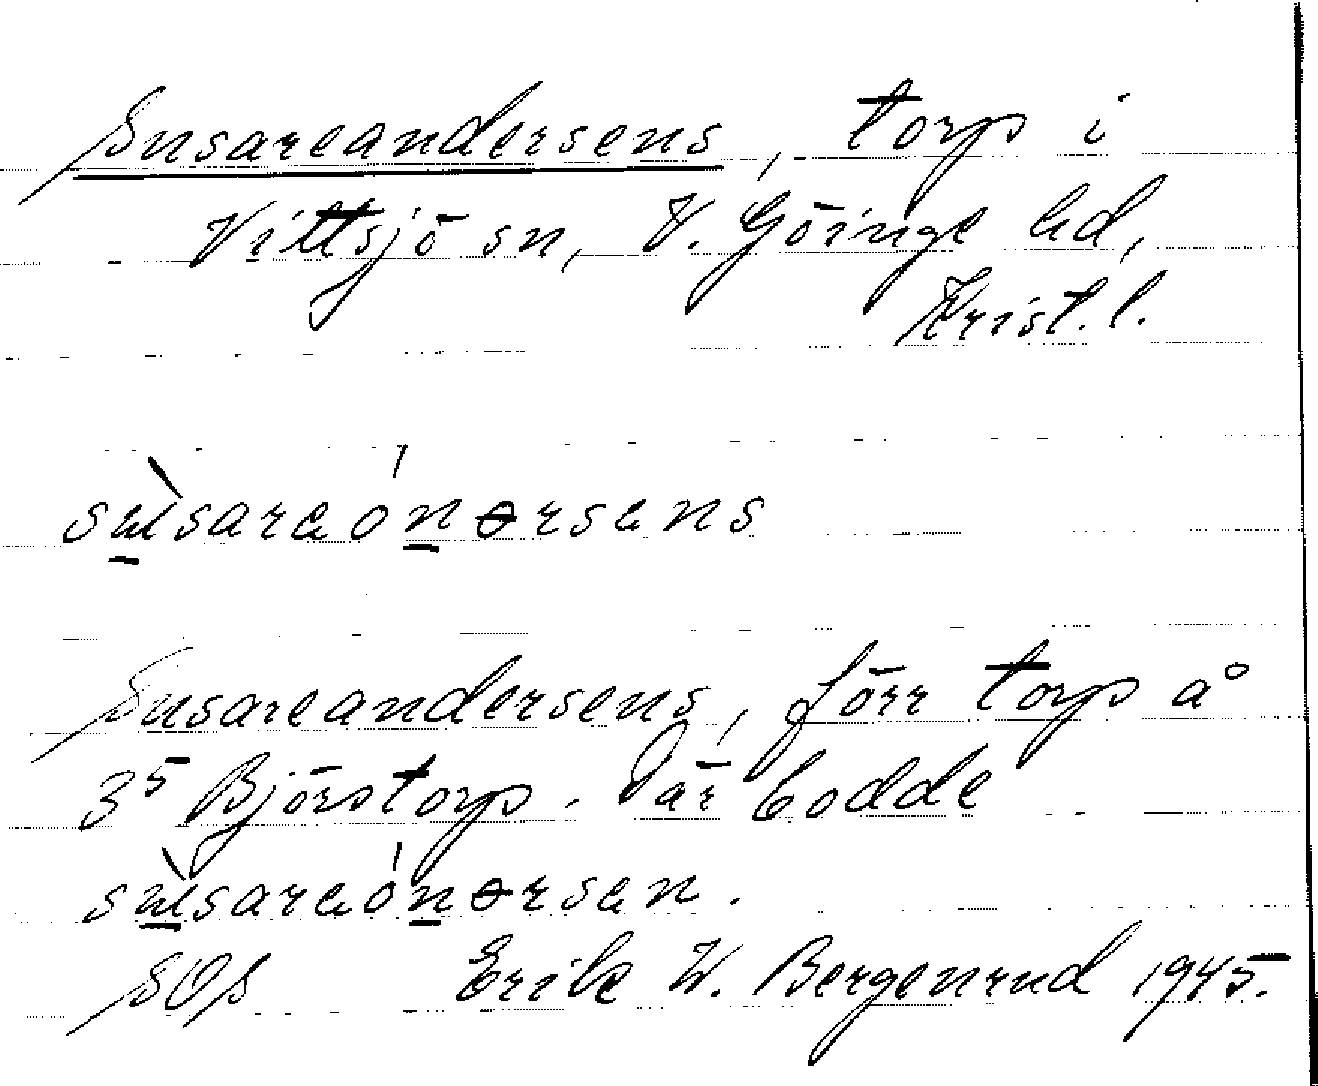 Susareandersens, torp i
Vittsjö sn, V. Göinge hd,
Krist. l.
sùsareónərsens
Susareandersens, förr torp å
3⁵ Björstorp. Där bodde
sùsareónərsen.
SOS Erik W. Bergenrud 1945.